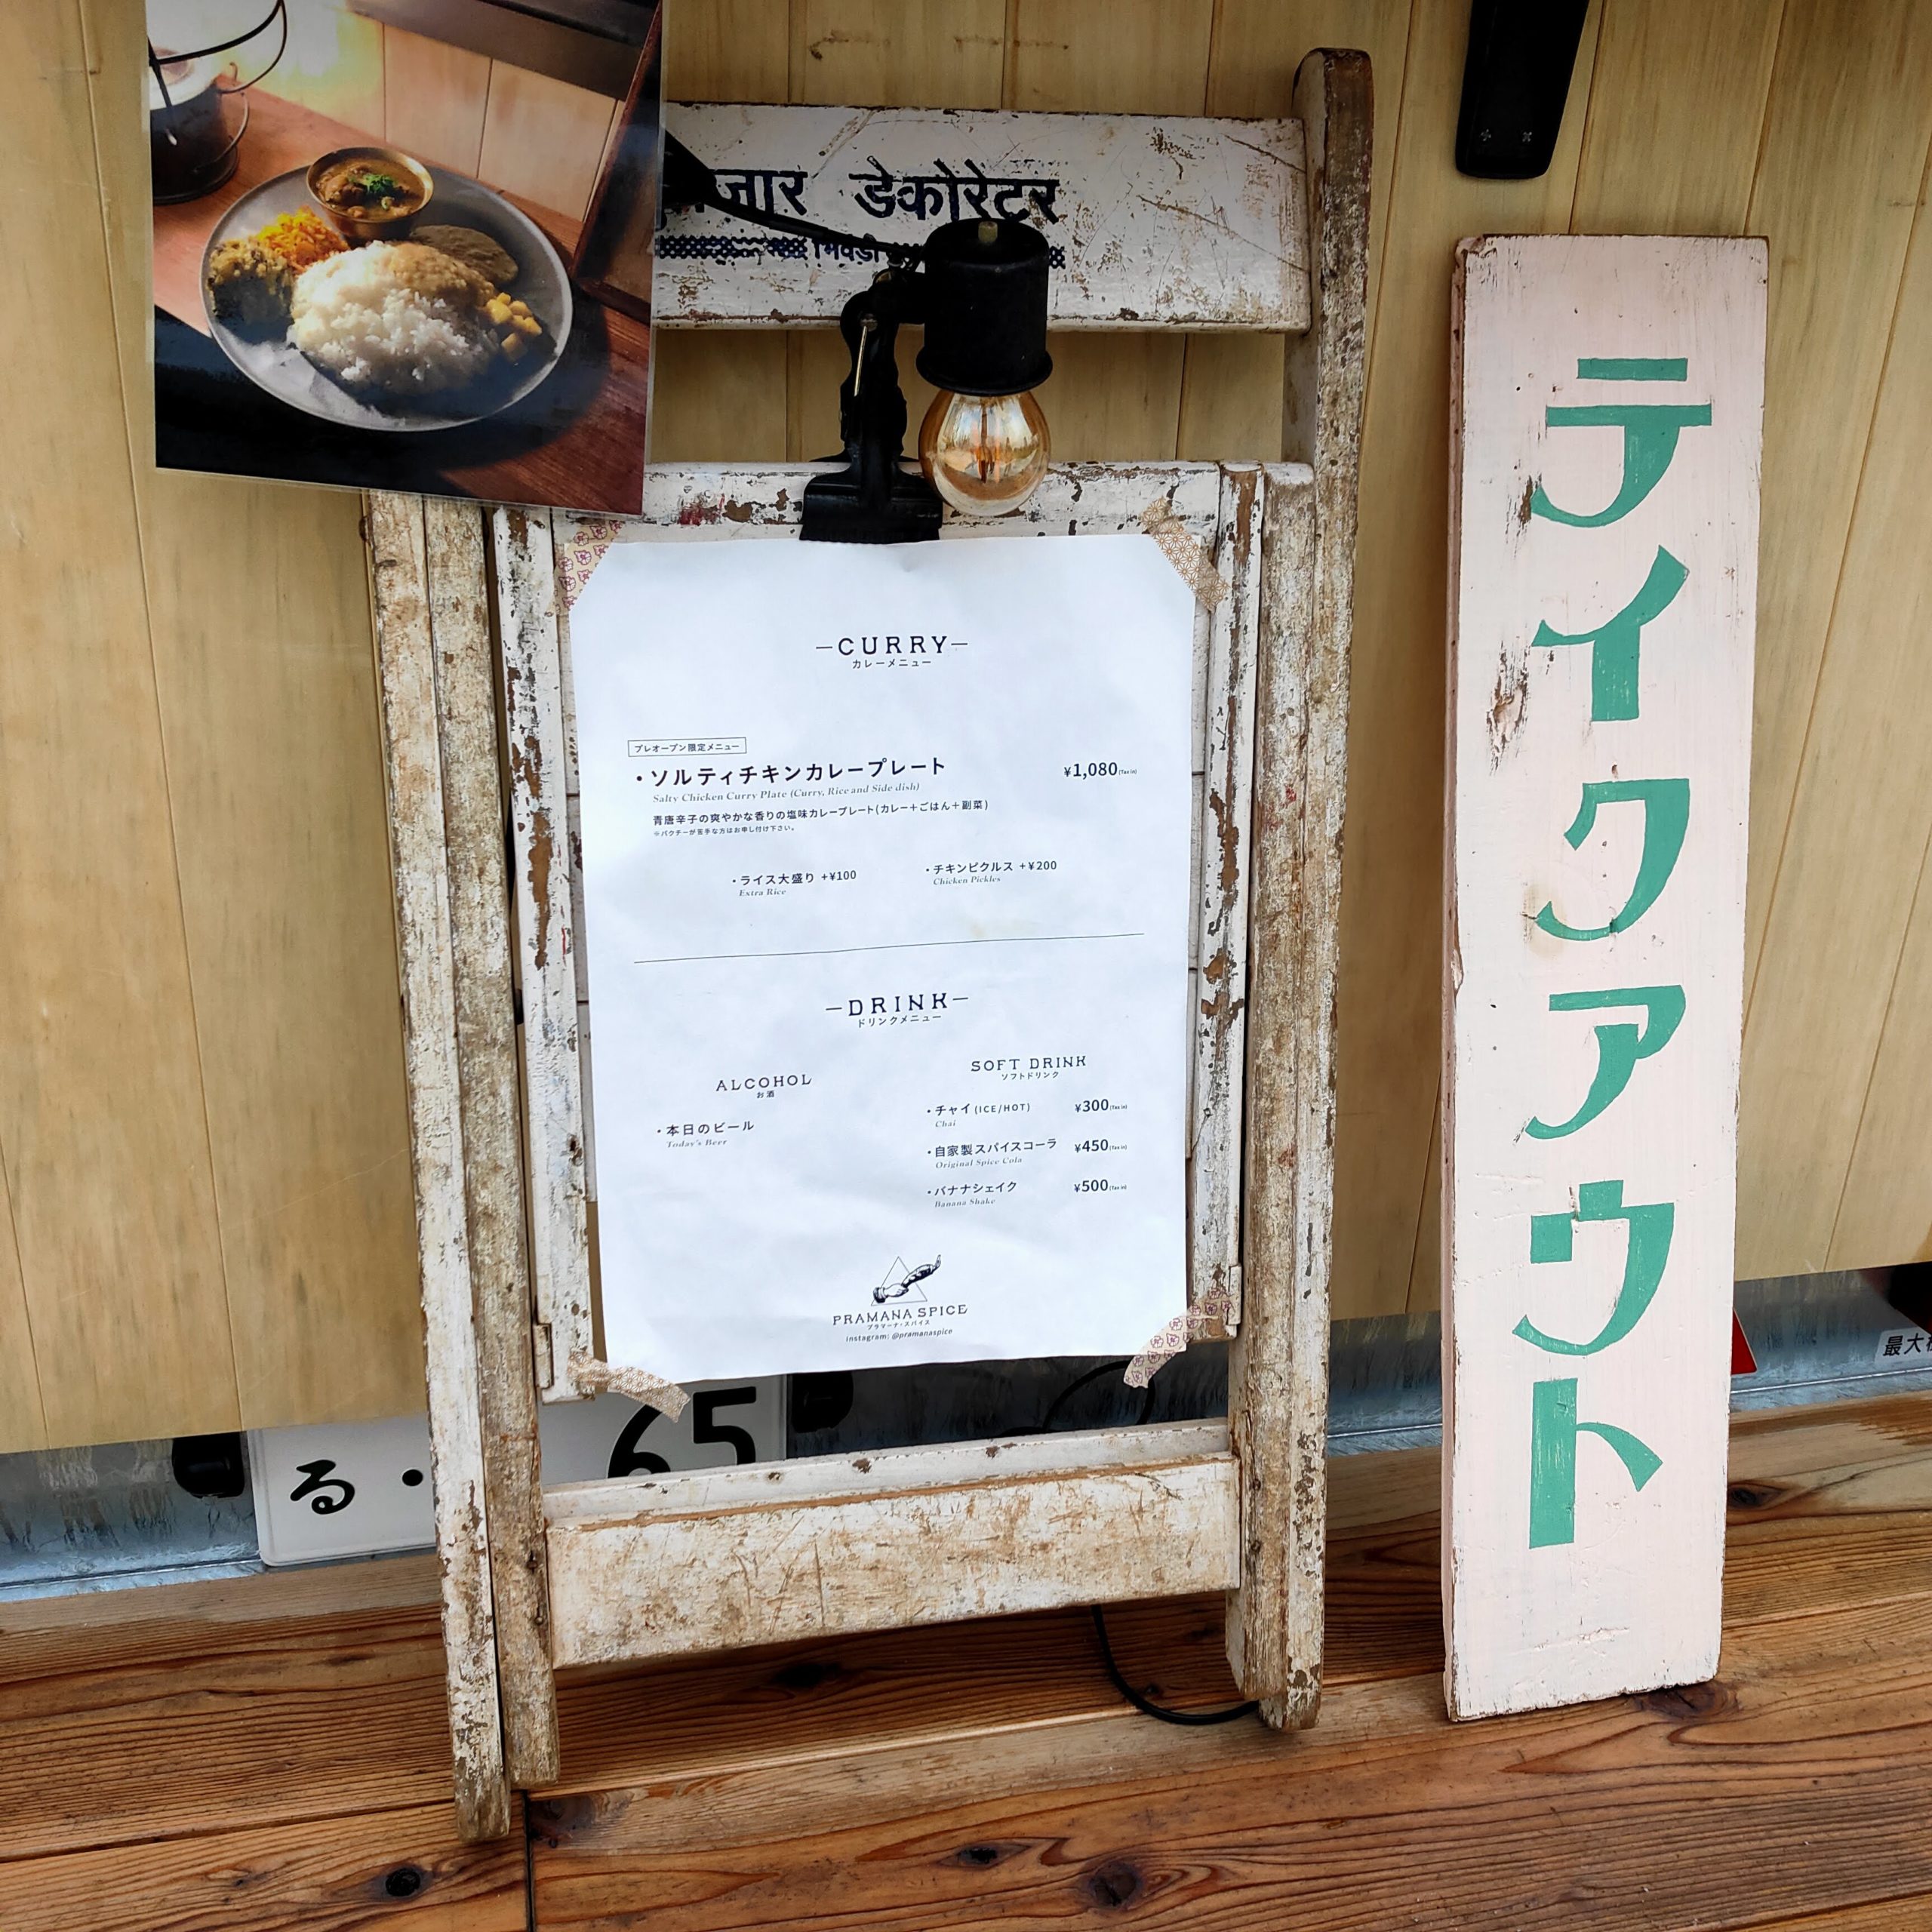 जार डेकोरेटर
भिवंडी
-CURRY-
カレーメニュー
プレオープン限定メニュー
・ソルティチキンカレープレート ¥1,080(Tax in)
Salty Chicken Curry Plate (Curry, Rice and Side dish)
青唐辛子の爽やかな香りの塩味カレープレート(カレー＋ごはん＋副菜)
※パクチーが苦手な方はお申し付け下さい。
・ライス大盛り +¥100
Extra Rice
・チキンピクルス +¥200
Chicken Pickles
-DRINK-
ドリンクメニュー
ALCOHOL
お酒
・本日のビール
Today's Beer
SOFT DRINK
ソフトドリンク
・チャイ(ICE/HOT) ¥300(Tax in)
Chai
・自家製スパイスコーラ ¥450(Tax in)
Original Spice Cola
・バナナシェイク ¥500(Tax in)
Banana Shake
PRAMANA SPICE
プラマーナ・スパイス
instagram: @pramanaspice
る・ 65
テイクアウト
最大